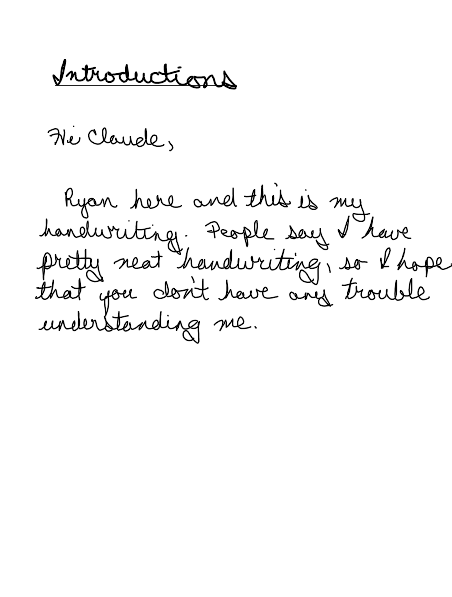 Introductions
Hi Claude,
Ryan here and this is my
handwriting. People say I have
pretty neat handwriting, so I hope
that you don't have any trouble
understanding me.